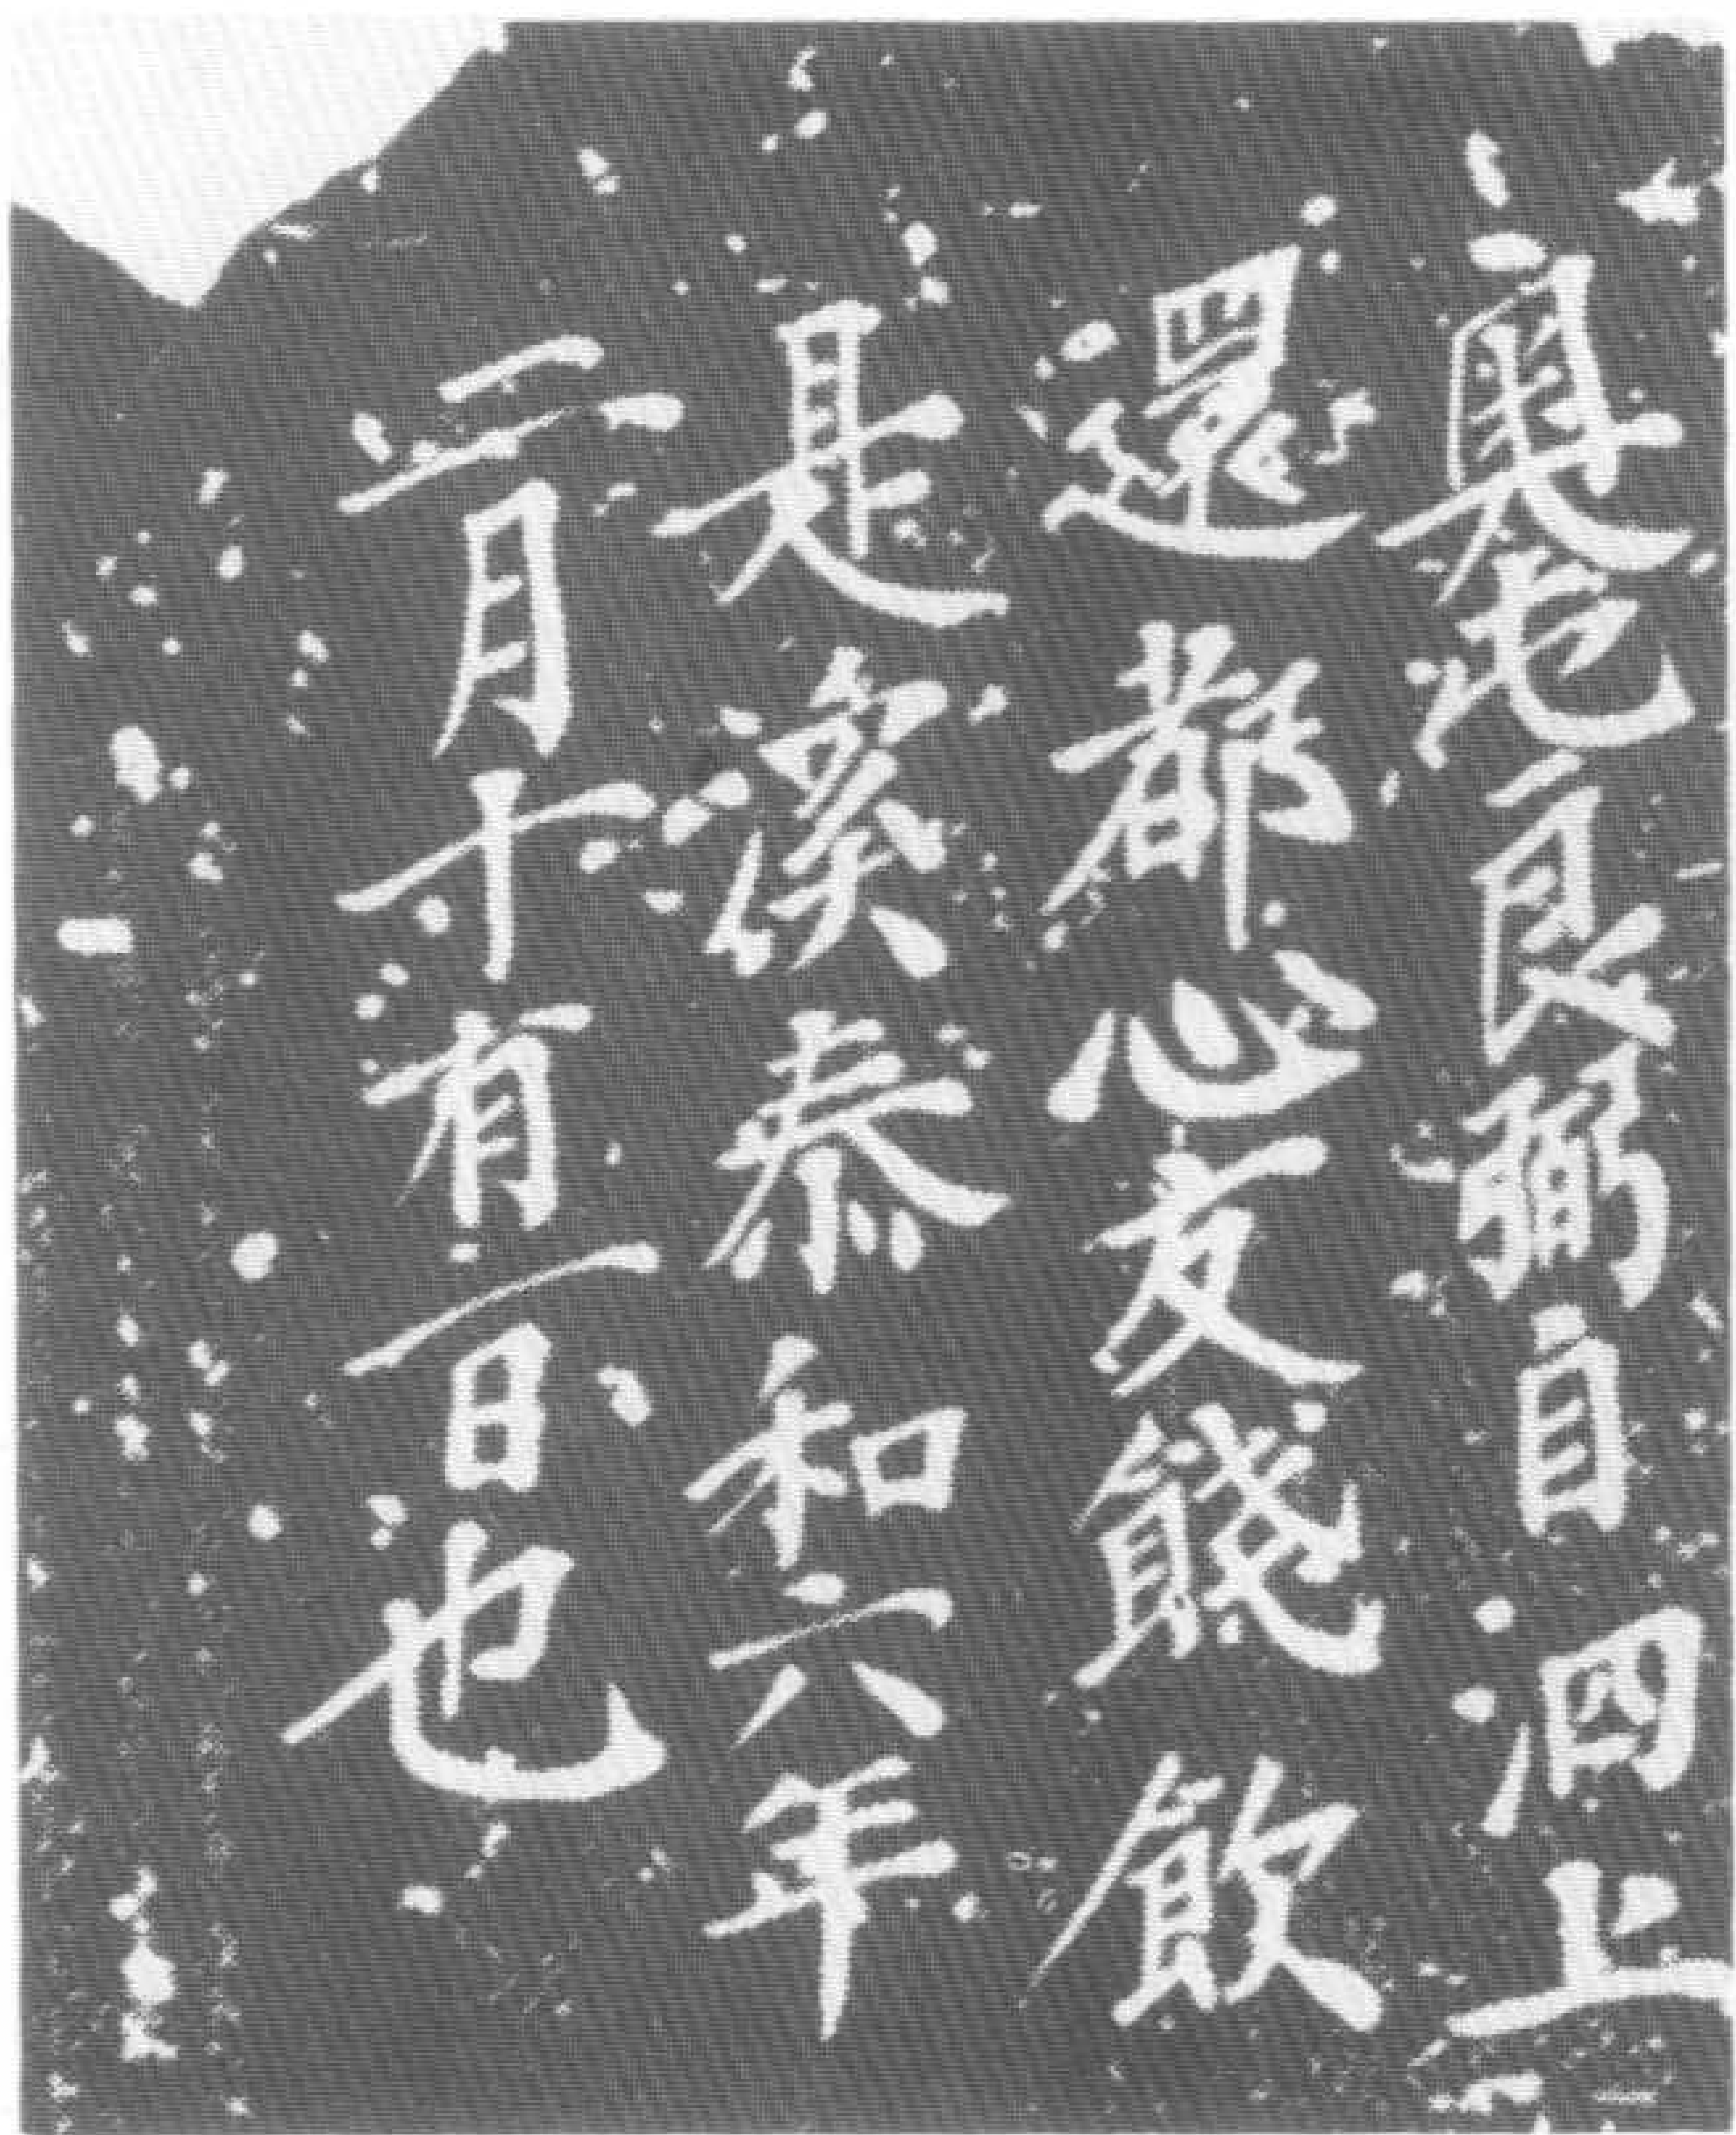 奧屯良弼自泗上
還都心友餞飲
是溪泰和六年
二月十有一日也